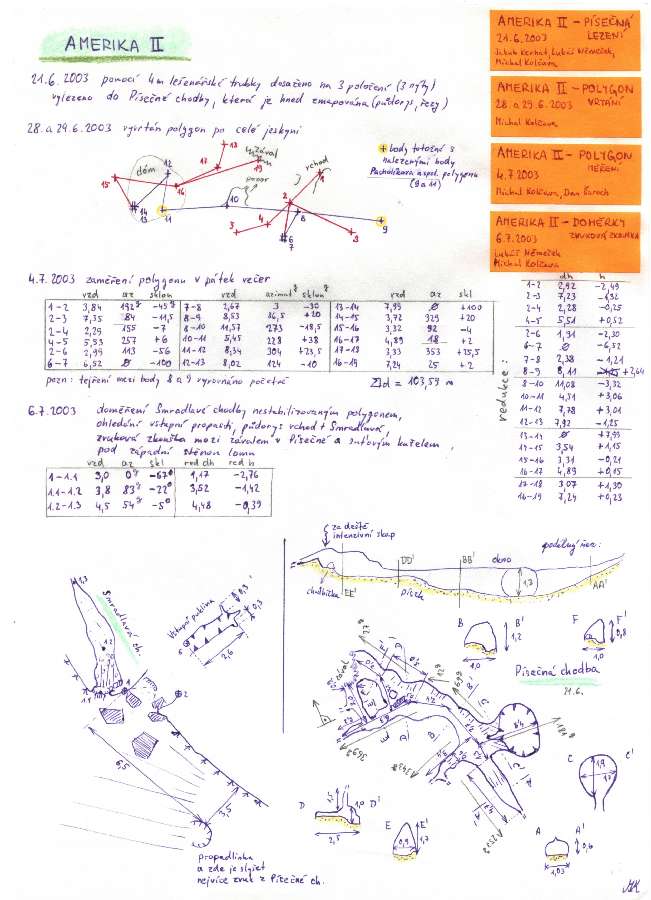 AMERIKA II
AMERIKA II – PÍSEČNÁ
21.6.2003 LEZENÍ
Michal Kolčava
AMERIKA II – POLYGON
28. a 29.6.2003 VRTÁNÍ
Michal Kolčava
AMERIKA II – POLYGON
4.7.2003 MĚŘENÍ
Michal Kolčava, Dan
AMERIKA II – DOMĚRKY
6.7.2003 ZVUKOVÁ ZKOUŠKA
Lukáš Němeček
Michal Kolčava
21.6.2003 pomocí 4m lešenářské trubky dosaženo na 3 položení (3 nýty)
vylezeno do Písečné chodby, která je hned zmapována (půdorys, řezy)
28. a 29.6.2003 vyvrtán polygon po celé jeskyni
body totožné s
nalezenými body
polygonu
(9 a 11)
dóm
zával
pozor
vchod
4.7.2003 zaměření polygonu v pátek večer
vzd az sklon vzd azimut sklon vzd az skl
1-2 3,84 192 -45 7-8 2,67 3 -30 13-14 7,93 ø +100
2-3 7,35 84 -11,5 8-9 8,53 36,5 +20 14-15 3,72 329 +20
2-4 2,29 155 -7 8-10 11,57 273 -18,5 15-16 3,32 92 -4
4-5 5,53 257 +6 10-11 5,45 228 +38 16-17 4,89 18 +2
2-6 2,99 113 -56 11-12 8,34 304 +23,5 17-18 3,33 353 +25,5
6-7 6,52 ø -100 12-13 8,02 124 -10 16-19 7,24 25 +2
pozn: tejření mezi body 8 a 9 vyrovnáno početně
Σd = 103,59 m
redukce:
dh h
1-2 2,92 -2,49
2-3 7,23 -1,32
2-4 2,28 -0,25
4-5 5,51 +0,52
2-6 1,31 -2,30
6-7 ø -6,52
7-8 2,38 -1,21
8-9 8,11 +2,64
8-10 11,08 -3,32
10-11 4,51 +3,06
11-12 7,78 +3,01
12-13 7,92 -1,25
13-14 ø +7,93
14-15 3,54 +1,15
15-16 3,31 -0,21
16-17 4,89 +0,15
17-18 3,07 +1,30
16-19 7,24 +0,23
6.7.2003 doměření Smradlavé chodby nestabilizovaným polygonem,
ohledání vstupní propasti, půdorys vchod + Smradlavá,
zvuková zkouška mezi závalem v Písečné a suťovým kuželem,
pod západní stěnou lomu
vzd az skl red dh red h
1-1.1 3,0 0 -67° 1,17 -2,76
1.1-1.2 3,8 83 -22° 3,52 -1,42
1.2-1.3 4,5 54 -5° 4,48 -0,39
za deště
intenzivní skap
podélný řez:
DD' BB' okno
chodbička EE' písek 1,3 AA'
Smradlavá ch.
Vstupní puklina
2,6
B B' 1,2
1,0
F F' 0,8
1,0
Písečná chodba
zával
6,5
3,5
propadlinka
a zde je slyšet
nejvíce zvuk z Písečné ch.
D D' 1,0
2,5
E E' 1,7
0,9
C C'
1,9
A A' 0,6
1,03
MK